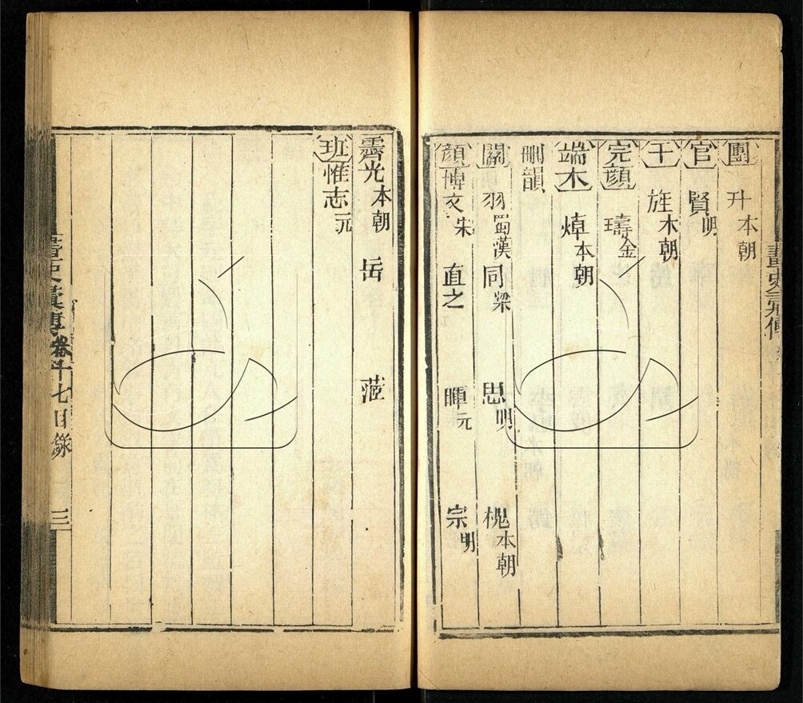 團升本朝
官賢明
干旌本朝
完顏璹金
端木焯本朝
刪韻
關羽蜀漢 同梁 思明 槐本朝
顏博文宋 直之 暉元 宗明
霽光本朝 岳
班惟志元
畫史彙傳
畫史彙傳 卷十七目錄 三